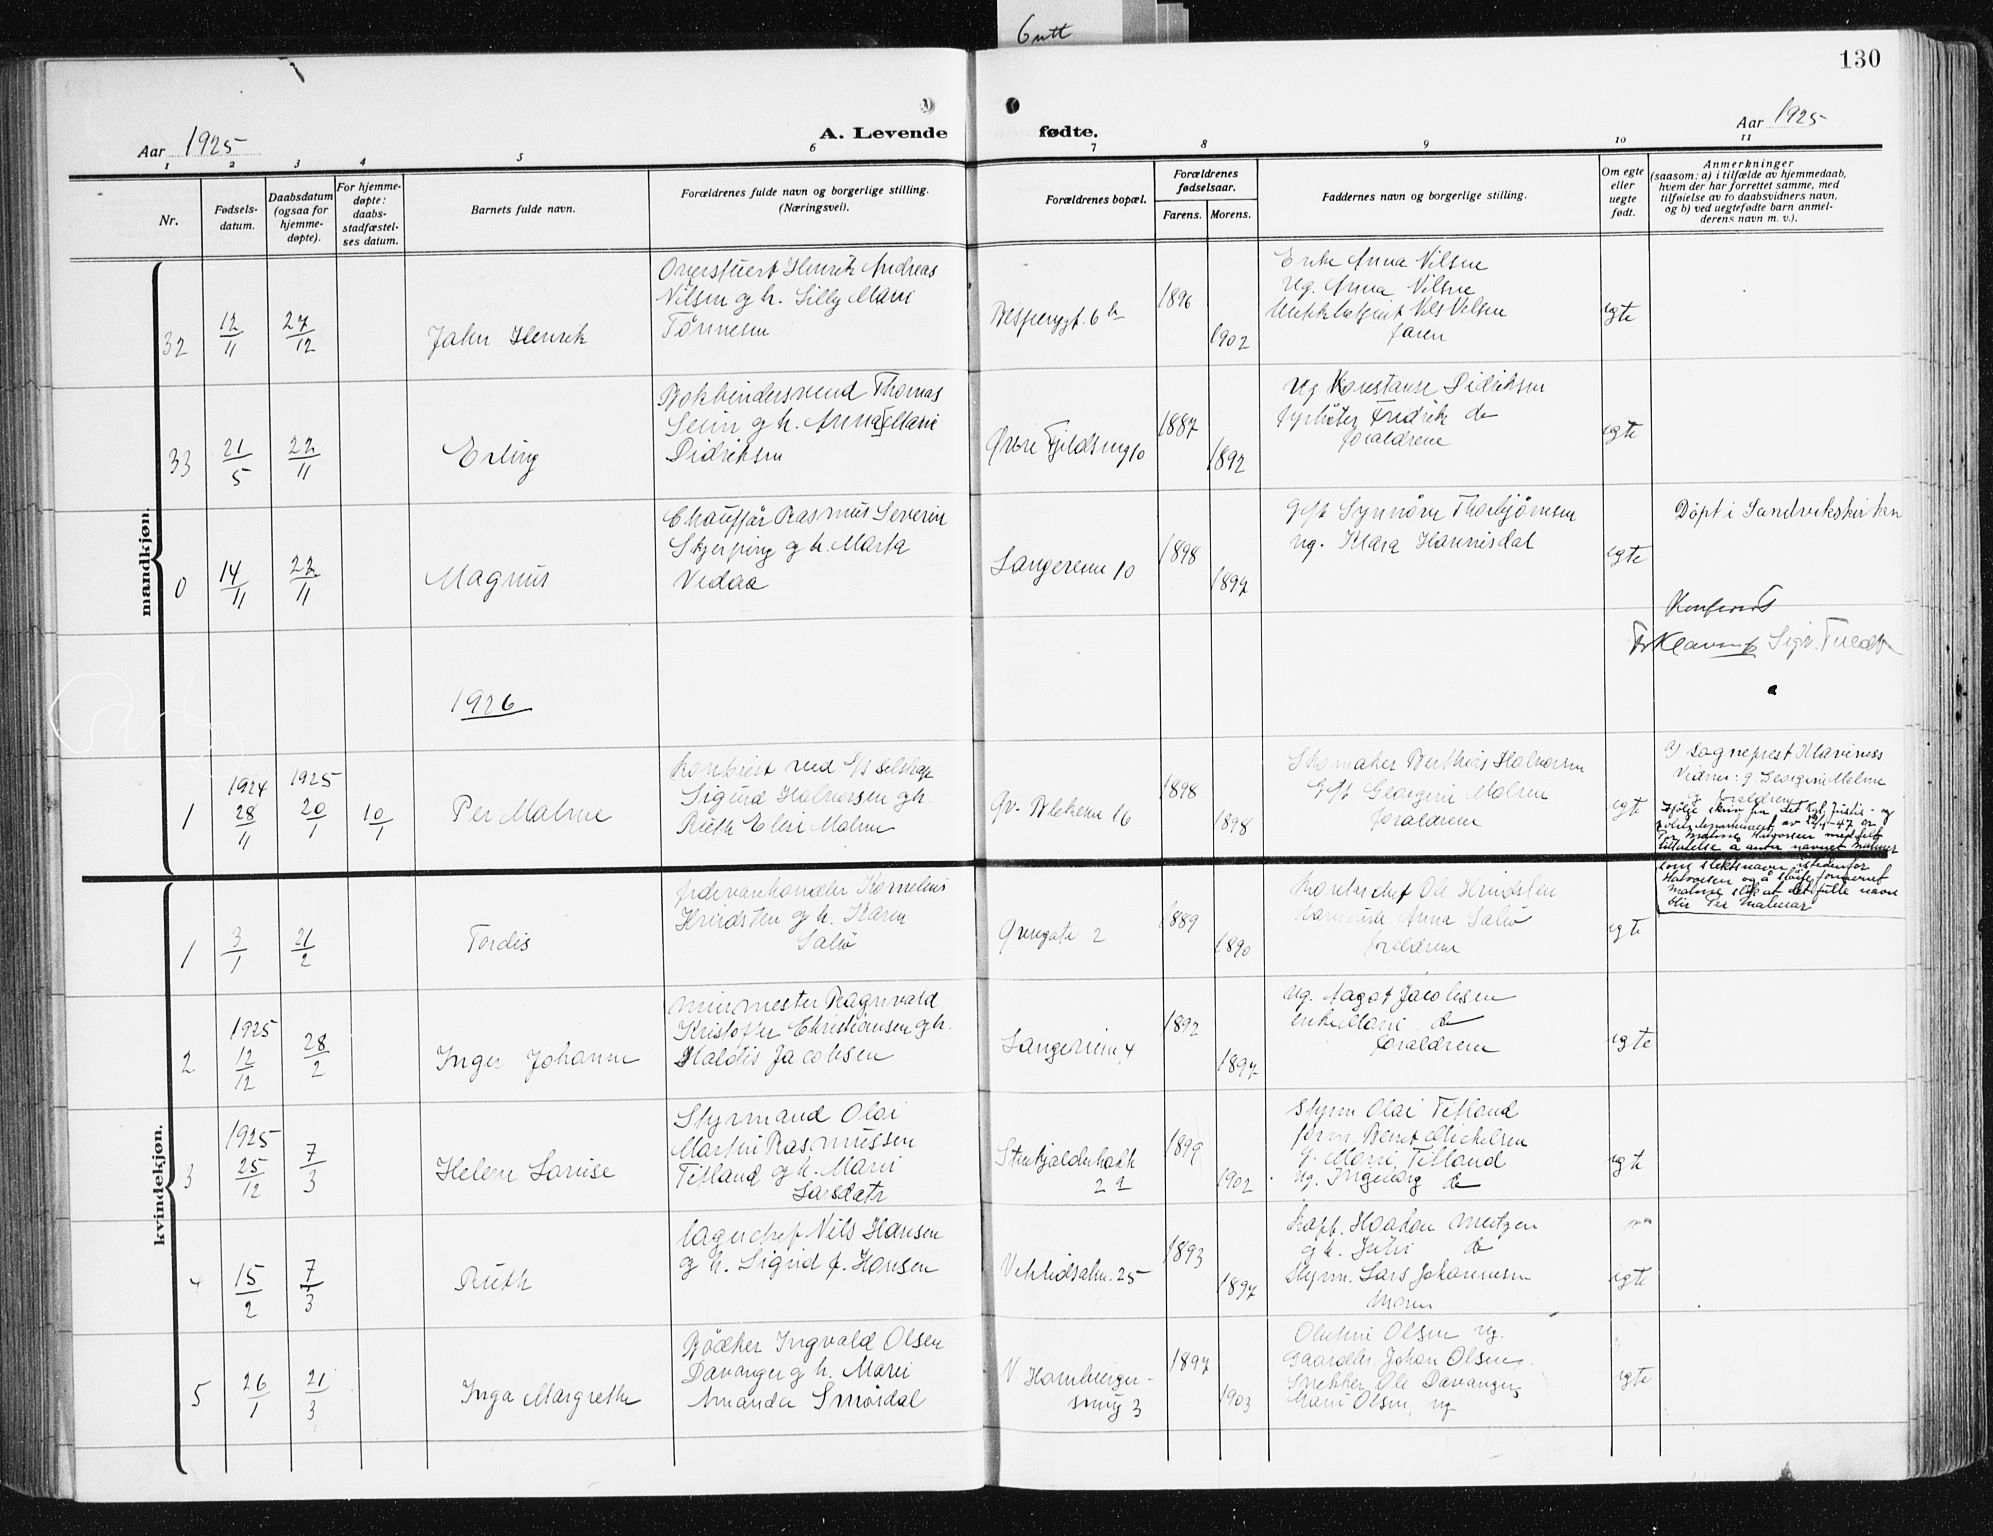 Gutt
130
Aar 1925
A. Levende fødte.
Aar 1925
1 2 3 4 5 6 7 8 9 10 11
Nr.
Fødsels-
datum.
Daabsdatum
(ogsaa for
hjemme-
døpte).
For hjemme-
døpte:
daabs-
stadfæstel-
ses datum.
Barnets fulde navn.
Forældrenes fulde navn og borgerlige stilling.
(Næringsvei).
Forældrenes bopæl.
Forældrenes
fødselsaar.
Farens. Morens.
Faddernes navn og borgerlige stilling.
Om egte
eller
uegte
født.
Anmerkninger
(saasom: a) i tilfælde av hjemmedaab,
hvem der har forrettet samme, med
tilføielse av to daabsvidners navn,
og b) ved uegtefødte barn anmel-
derens navn m. v.).
mandkjøn.
32
12/11
27/12
Jahn Henrik
Henrik Andreas
Nilsen og h. Lilly Marie
Tönnesen
1896
1902
Enke Anna Nilsen
Ug. Anna Nilsen
Nils Nilsen
faren
egte
33
21/5
22/11
Erling
Bokbindersvend Thomas
og h. Anna Marie
Didriksen
Øvre Fjeldsmug 10
1887
1892
Ug Konstanse Didriksen
Fredrik do
forældrene
egte
0
14/11
22/11
Magnus
Chauffør Rasmus Severin
Skjerping og h. Marta
Vedaa
Langerenen 10
1898
1897
Gift Synnöve Thorbjørnsen
ug. Klara Hannisdal
egte
Döpt i Sandvikskirken
1926
1
1924
28/11
1925
20/1
10/1
Per Malme
Sigurd Halvorsen og h.
Ruth Elise Malme
Øv. Blekevn 16
1898
1898
Skomaker Berthius Halvorsen
Gift Georgine Malme
forældrene
egte
a) Sogneprest Klaveness
Vidner: g. Georgine Malme
og forældrene
Ifølge skriv fra det Kgl. Justis- og
politidepartement av -47 er
Per Malme Halvorsen meddelt
tillatelse å anta navnet Malmar
som slektsnavn istedenfor
Halvorsen og å sløife fornavnet
Malme slik at det fulle navn
blir Per Malmar
kvindekjøn.
1
3/1
21/2
Tordis
Kornelius
Hindsten og h. Karen
Salvö
Øvregate 2
1889
1890
Ole Hindsten
Anna Salvö
forældrene
egte
2
1925
12/12
28/2
Inger Johanne
Murmester Ragnvald
Kristoffer Christiansen og h.
Haldis Jacobsen
Langerenen 4
1892
1897
Ug. Aagot Jacobsen
enke Marie do
forældrene
egte
3
1925
25/12
7/3
Helene Lovise
Styrmand Olai
Martin Rasmussen
Titland og h. Marie
Larsdatr
21
1899
1902
Styrm Olai Titland
Bernt Mickelsen
g. Marie Titland
ug. Ingeborg do
egte
4
15/2
7/3
Ruth
lagerchef Nils Hansen
og h. Sigrid f. Hansen
25
1893
1897
Kapt. Haakon Mentzen
og h. Julie do
Styrm. Lars Johannesen
Moren
egte
5
26/1
21/3
Inga Margrethe
Bödker Ingvald Olsen
Davanger og h. Marie
Amanda Smørdal
V. Hamburger-
smug 3
1897
1903
Olufine Olsen ug.
Gaardbr. Johan Olsen
Snekker Ole Davanger
Marie Olsen, ug
egte